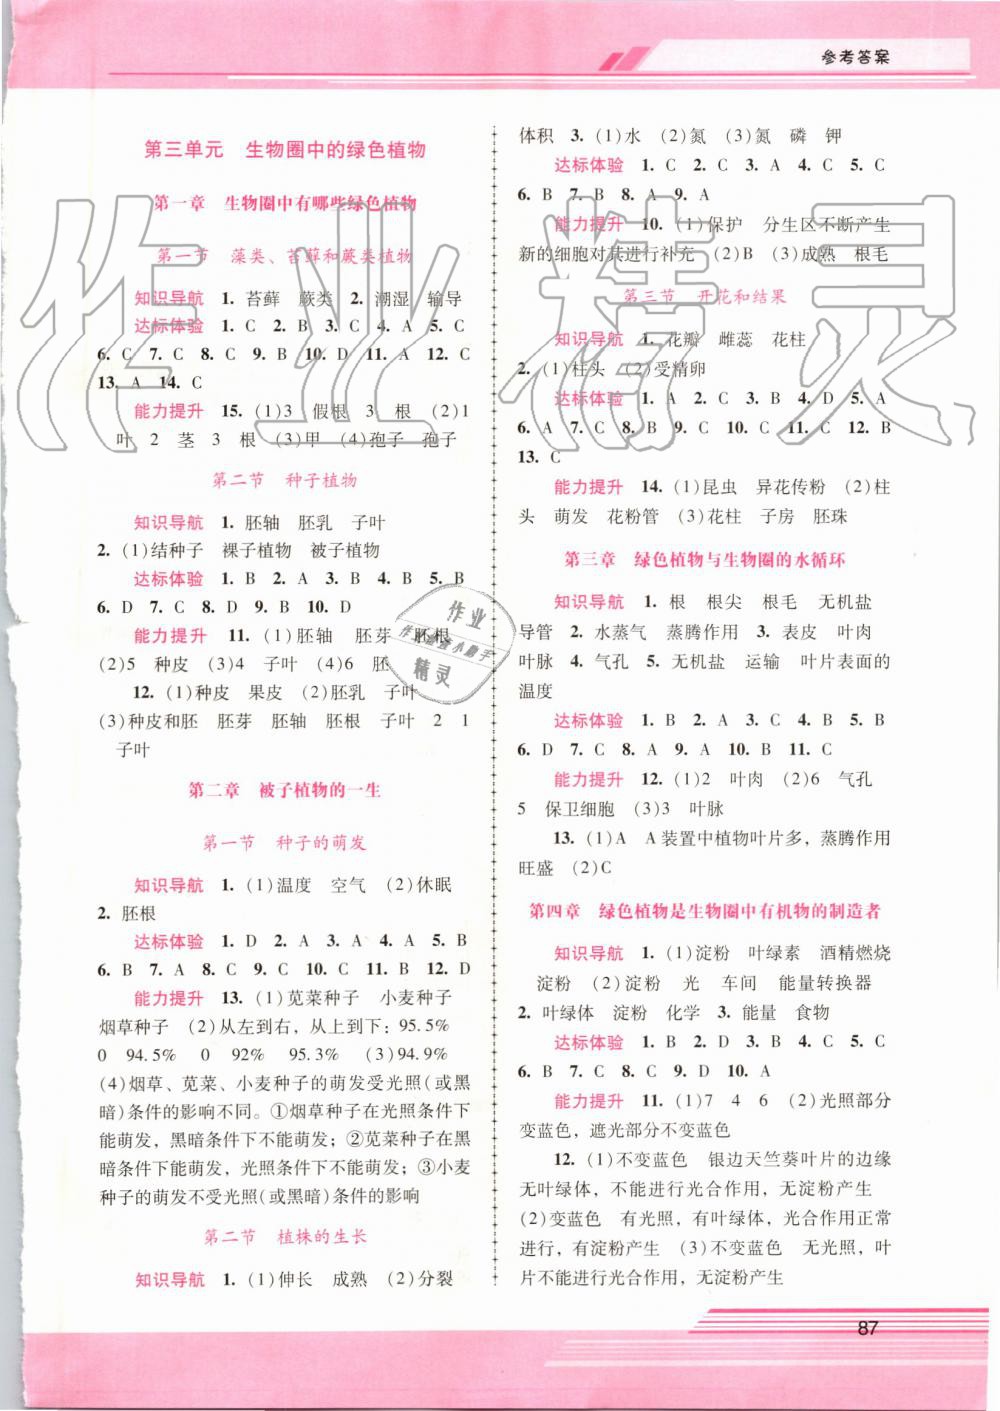 参考答案
第三单元　生物圈中的绿色植物
第一章　生物圈中有哪些绿色植物
第一节　藻类、苔藓和蕨类植物
知识导航　1. 苔藓　蕨类　2. 潮湿　输导
达标体验　1. C　2. B　3. C　4. A　5. C
6. C　7. C　8. C　9. B　10. D　11. A　12. C
13. A　14. C
能力提升　15. (1)3　假根　3　根　(2)1
叶　2　茎　3　根　(3)甲　(4)孢子　孢子
第二节　种子植物
知识导航　1. 胚轴　胚乳　子叶
2. (1)结种子　裸子植物　被子植物
达标体验　1. B　2. A　3. B　4. B　5. B
6. D　7. C　8. D　9. B　10. D
能力提升　11. (1)胚轴　胚芽　胚根
(2)5　种皮　(3)4　子叶　(4)6　胚
12. (1)种皮　果皮　(2)胚乳　子叶
(3)种皮和胚　胚芽　胚轴　胚根　子叶　2　1
子叶
第二章　被子植物的一生
第一节　种子的萌发
知识导航　1. (1)温度　空气　(2)休眠
2. 胚根
达标体验　1. D　2. A　3. A　4. A　5. B
6. B　7. A　8. C　9. C　10. C　11. B　12. D
能力提升　13. (1)苋菜种子　小麦种子
烟草种子　(2)从左到右，从上到下：95.5%
0　94.5%　0　92%　95.3%　(3)94.9%
(4)烟草、苋菜、小麦种子的萌发受光照(或黑
暗)条件的影响不同。①烟草种子在光照条件下
能萌发，黑暗条件下不能萌发；②苋菜种子在黑
暗条件下能萌发，光照条件下不能萌发；③小麦
种子的萌发不受光照(或黑暗)条件的影响
第二节　植株的生长
知识导航　1. (1)伸长　成熟　(2)分裂
体积　3. (1)水　(2)氮　(3)氮　磷　钾
达标体验　1. C　2. C　3. A　4. C　5. C
6. B　7. B　8. A　9. A
能力提升　10. (1)保护　分生区不断产生
新的细胞对其进行补充　(2)B　(3)成熟　根毛
第三节　开花和结果
知识导航　1. 花瓣　雌蕊　花柱
2. (1)柱头　(2)受精卵
达标体验　1. A　2. C　3. B　4. D　5. A
6. A　7. C　8. B　9. B　10. C　11. C　12. B
13. C
能力提升　14. (1)昆虫　异花传粉　(2)柱
头　萌发　花粉管　(3)花柱　子房　胚珠
第三章　绿色植物与生物圈的水循环
知识导航　1. 根　根尖　根毛　无机盐
导管　2. 水蒸气　蒸腾作用　3. 表皮　叶肉
叶脉　4. 气孔　5. 无机盐　运输　叶片表面的
温度
达标体验　1. B　2. A　3. C　4. B　5. B
6. D　7. C　8. A　9. A　10. B　11. C
能力提升　12. (1)2　叶肉　(2)6　气孔
5　保卫细胞　(3)3　叶脉
13. (1)A　A装置中植物叶片多，蒸腾作用
旺盛　(2)C
第四章　绿色植物是生物圈中有机物的制造者
知识导航　1. (1)淀粉　叶绿素　酒精燃烧
淀粉　(2)淀粉　光　车间　能量转换器
2. 叶绿体　淀粉　化学　3. 能量　食物
达标体验　1. B　2. D　3. B　4. C　5. C
6. B　7. C　8. D　9. D　10. A
能力提升　11. (1)7　4　6　(2)光照部分
变蓝色，遮光部分不变蓝色
12. (1)不变蓝色　银边天竺葵叶片的边缘
无叶绿体，不能进行光合作用，无淀粉产生
(2)变蓝色　有光照，有叶绿体，光合作用正常
进行，有淀粉产生　(3)不变蓝色　无光照，叶
片不能进行光合作用，无淀粉产生
87
作业精灵